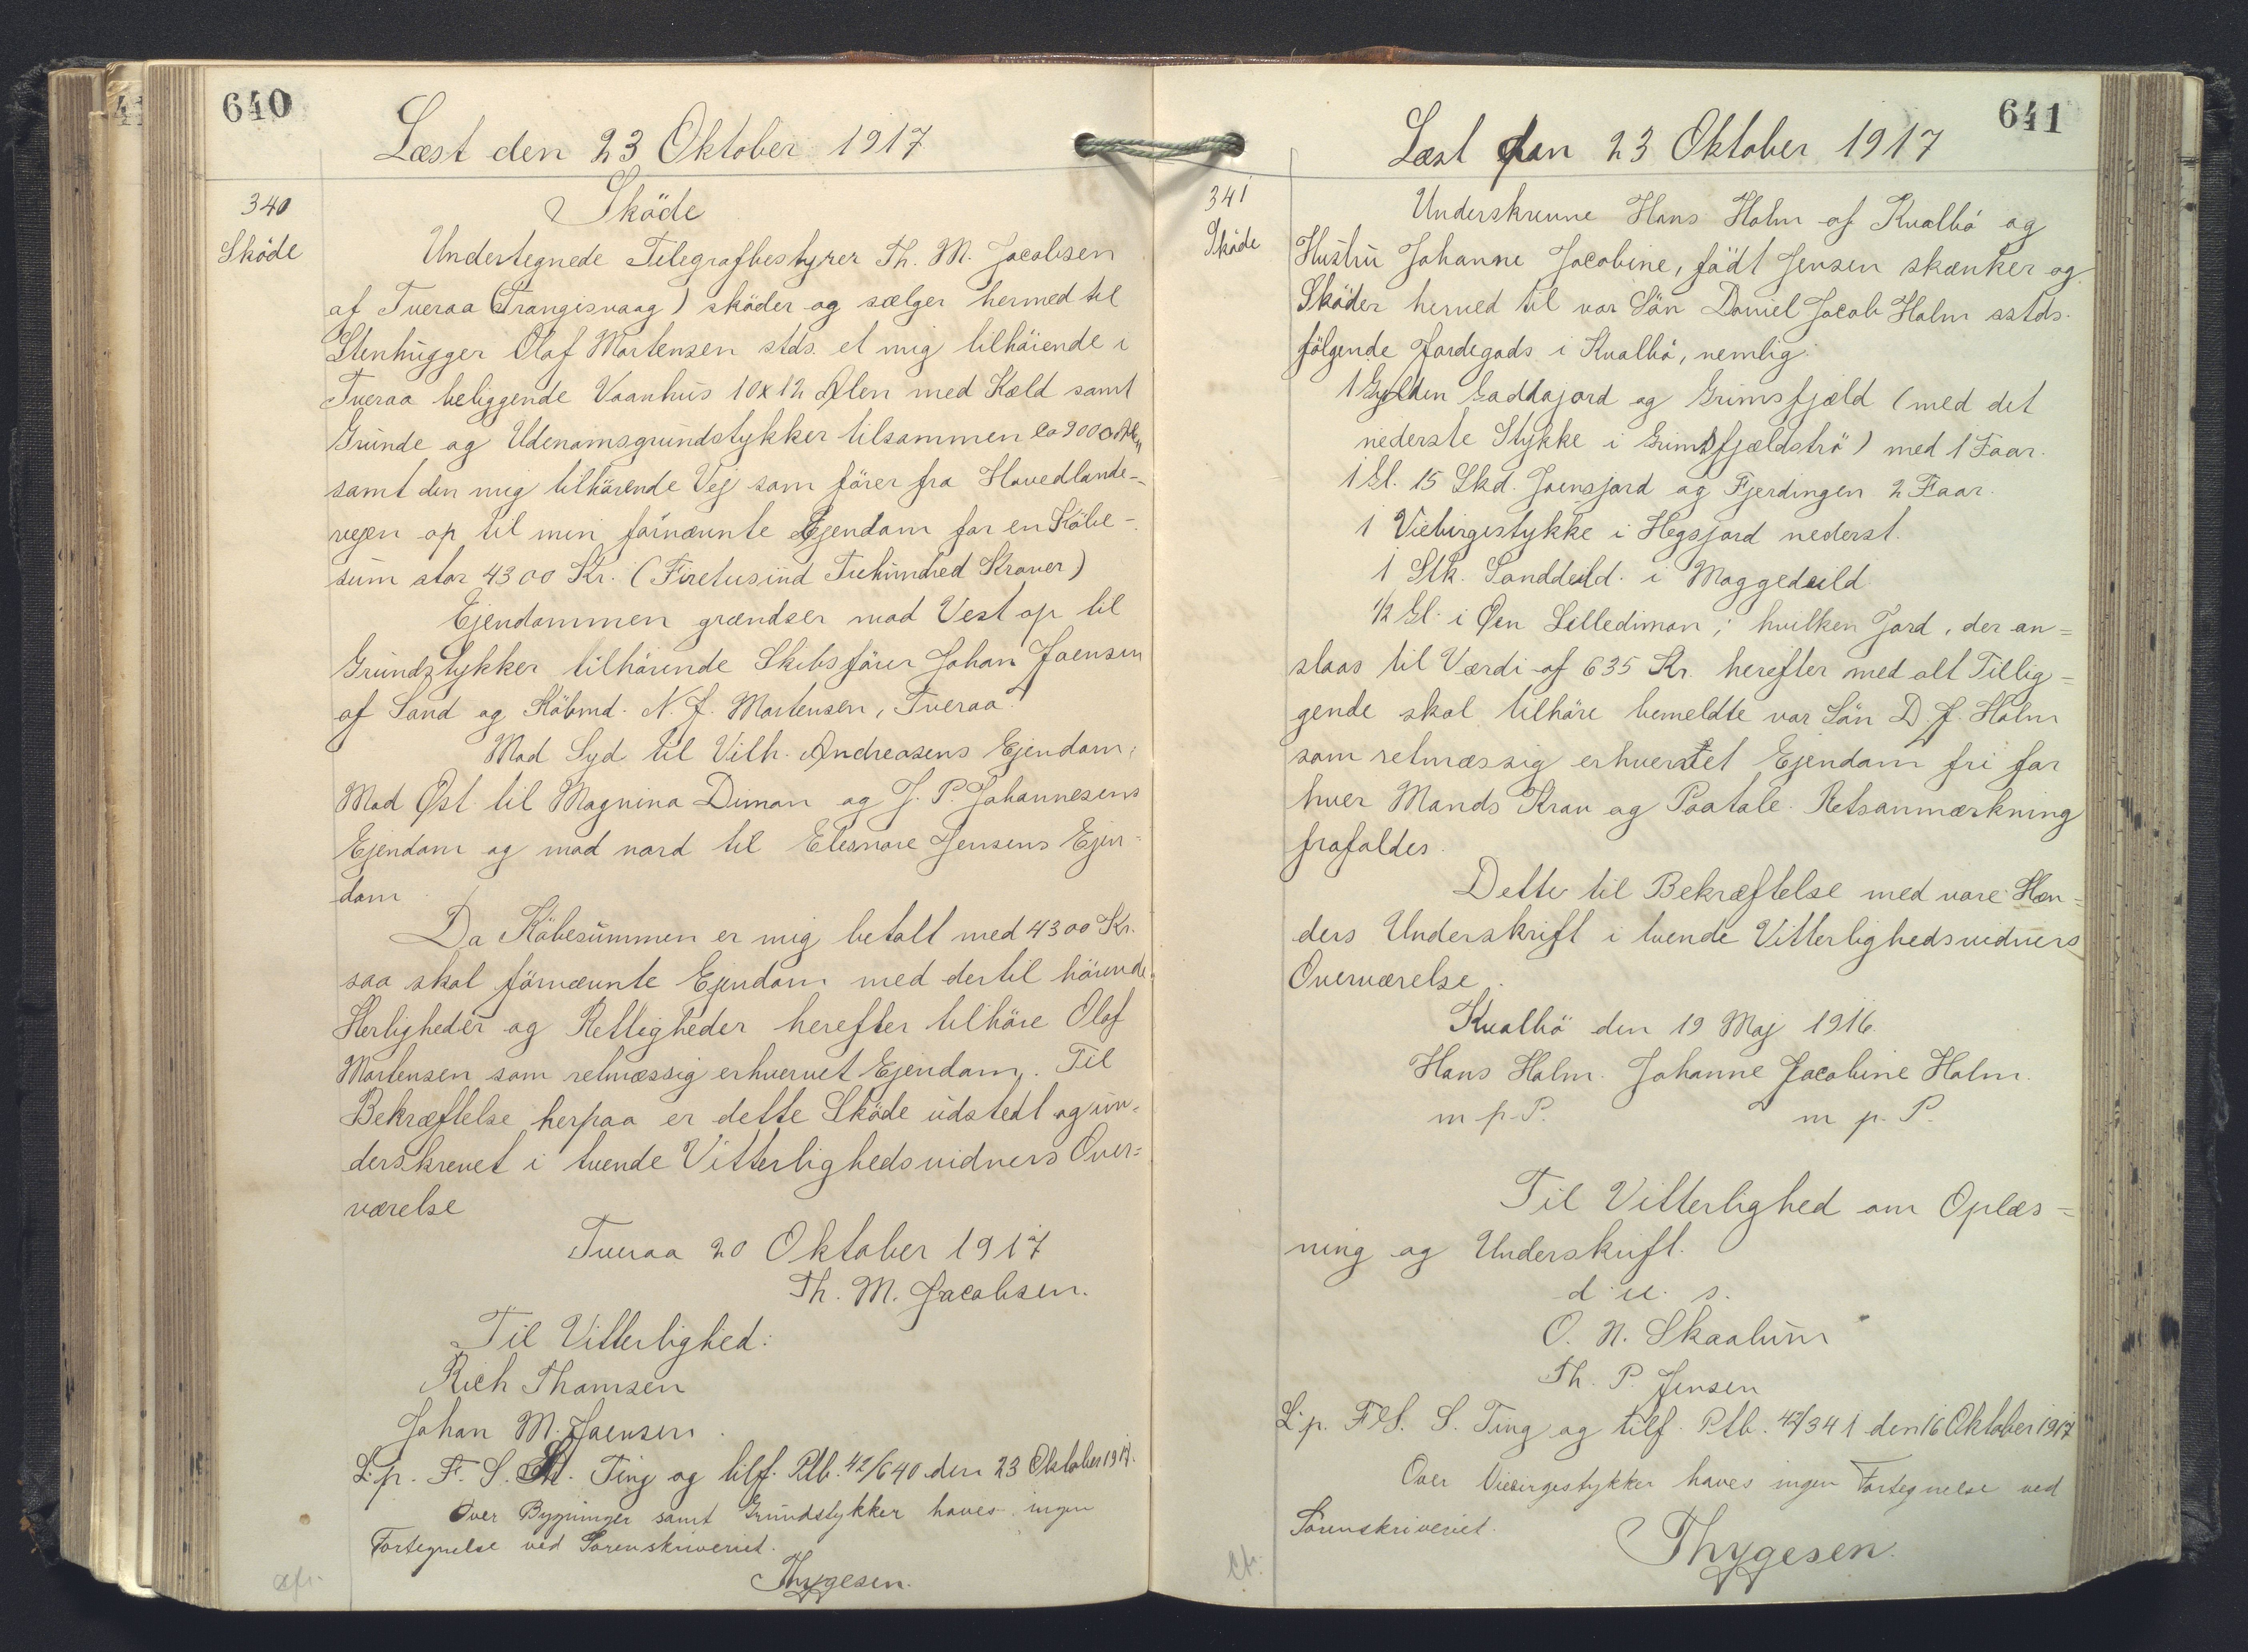 640
Læst den 23 Oktober 1917
340
Sköde
Sköde
Undertegnede Telegrafbestyrer Th. M. Jacobsen
af Tveraa (Trangisvaag) sköder og sælger hermed til
Stenhugger Olaf Mortensen stds. et mig tilhörende i
Tveraa beliggende Vaanhus 10x12 Alen med Kæld samt
Grunde og Udenomsgrundstykker tilsammen ca 9000 Alen
samt den mig tilhörende Vej som förer fra Hovedlande-
vejen op til min förnævnte Ejendom for en Köbe-
sum stor 4300 Kr. (Firetusind Trehundred Kroner)
Ejendommen grændser mod Vest op til
Grundstykker tilhörende Skibsförer Johan Joensen
af Sand og Köbmd. N. J. Mortensen, Tveraa.
Mod Syd til Vilh. Andreasens Ejendom,
Mod Øst til Magnina Dimon og J. P. Johannesens
Ejendom og mod nord til Elesnore Jensens Ejen-
dom
Da Köbesummen er mig betalt med 4300 Kr.
saa skal förnævnte Ejendom med dertil hörende
Herligheder og Rettigheder herefter tilhöre Olaf
Mortensen som retmæssig erhvervet Ejendom. Til
Bekræftelse herpaa er dette Sköde udstedt og un-
derskrevet i tvende Vitterlighedsvidners Over=
værelse
Tveraa 20 Oktober 1917
Th. M. Jacobsen.
Til Vitterlighed:
Rich Thomsen
Johan M. Joensen.
L. p. F. S. Ting og tilf. Ptb. 42/640 den 23 Oktober 1917.
Over Bygninger samt Grundstykker haves ingen
Fortegnelse ved Sorenskriveriet.
Thygesen.
641
Læst den 23 Oktober 1917
341
Sköde
Underskrevne Hans Holm af Kvalbö og
Hustru Johanne Jacobine, födt Jensen skænker og
Sköder herved til vor Sön Daniel Jacob Holm sstds.
fölgende Jordegods i Kvalbö, nemlig:
1 Gylden Gaddajord og Grimsfjæld (med det
nederste Stykke i Grimsfjældströ) med 1 Faar.
1 Gl. 15 Skd. Joensjord og Fjerdingen 2 Faar.
1 Viebirgestykke i Hegsjord nederst.
1 Stk. Sanddeild. i Moggedeild
1/2 Gl. i Øen Lilledimon; hvilken Jord, der an=
slaas til Værdi af 635 Kr. herefter med alt Tillig=
gende skal tilhöre bemeldte vor Sön D. J. Holm
som retmæssig erhvervet Ejendom fri for
hver Mands Krav og Paatale. Retsanmærkning
frafaldes.
Dette til Bekræftelse med vore Hæn=
ders Underskrift i tvende Vitterlighedsvidners
Overværelse.
Kvalbö den 19 Maj 1916.
Hans Holm. Johanne Jacobine Holm.
m p. P. m p. P.
Til Vitterlighed om Oplæs=
ning og Underskrift.
d. u. s.
O. N. Skaalum
Th. P. Jensen
L. p. F. S. S. Ting og tilf. Ptb. 42/341 den 16 Oktober 1917
Over Viebirgestykker haves ingen Fortegnelse ved
Sorenskriveriet.
Thygesen.